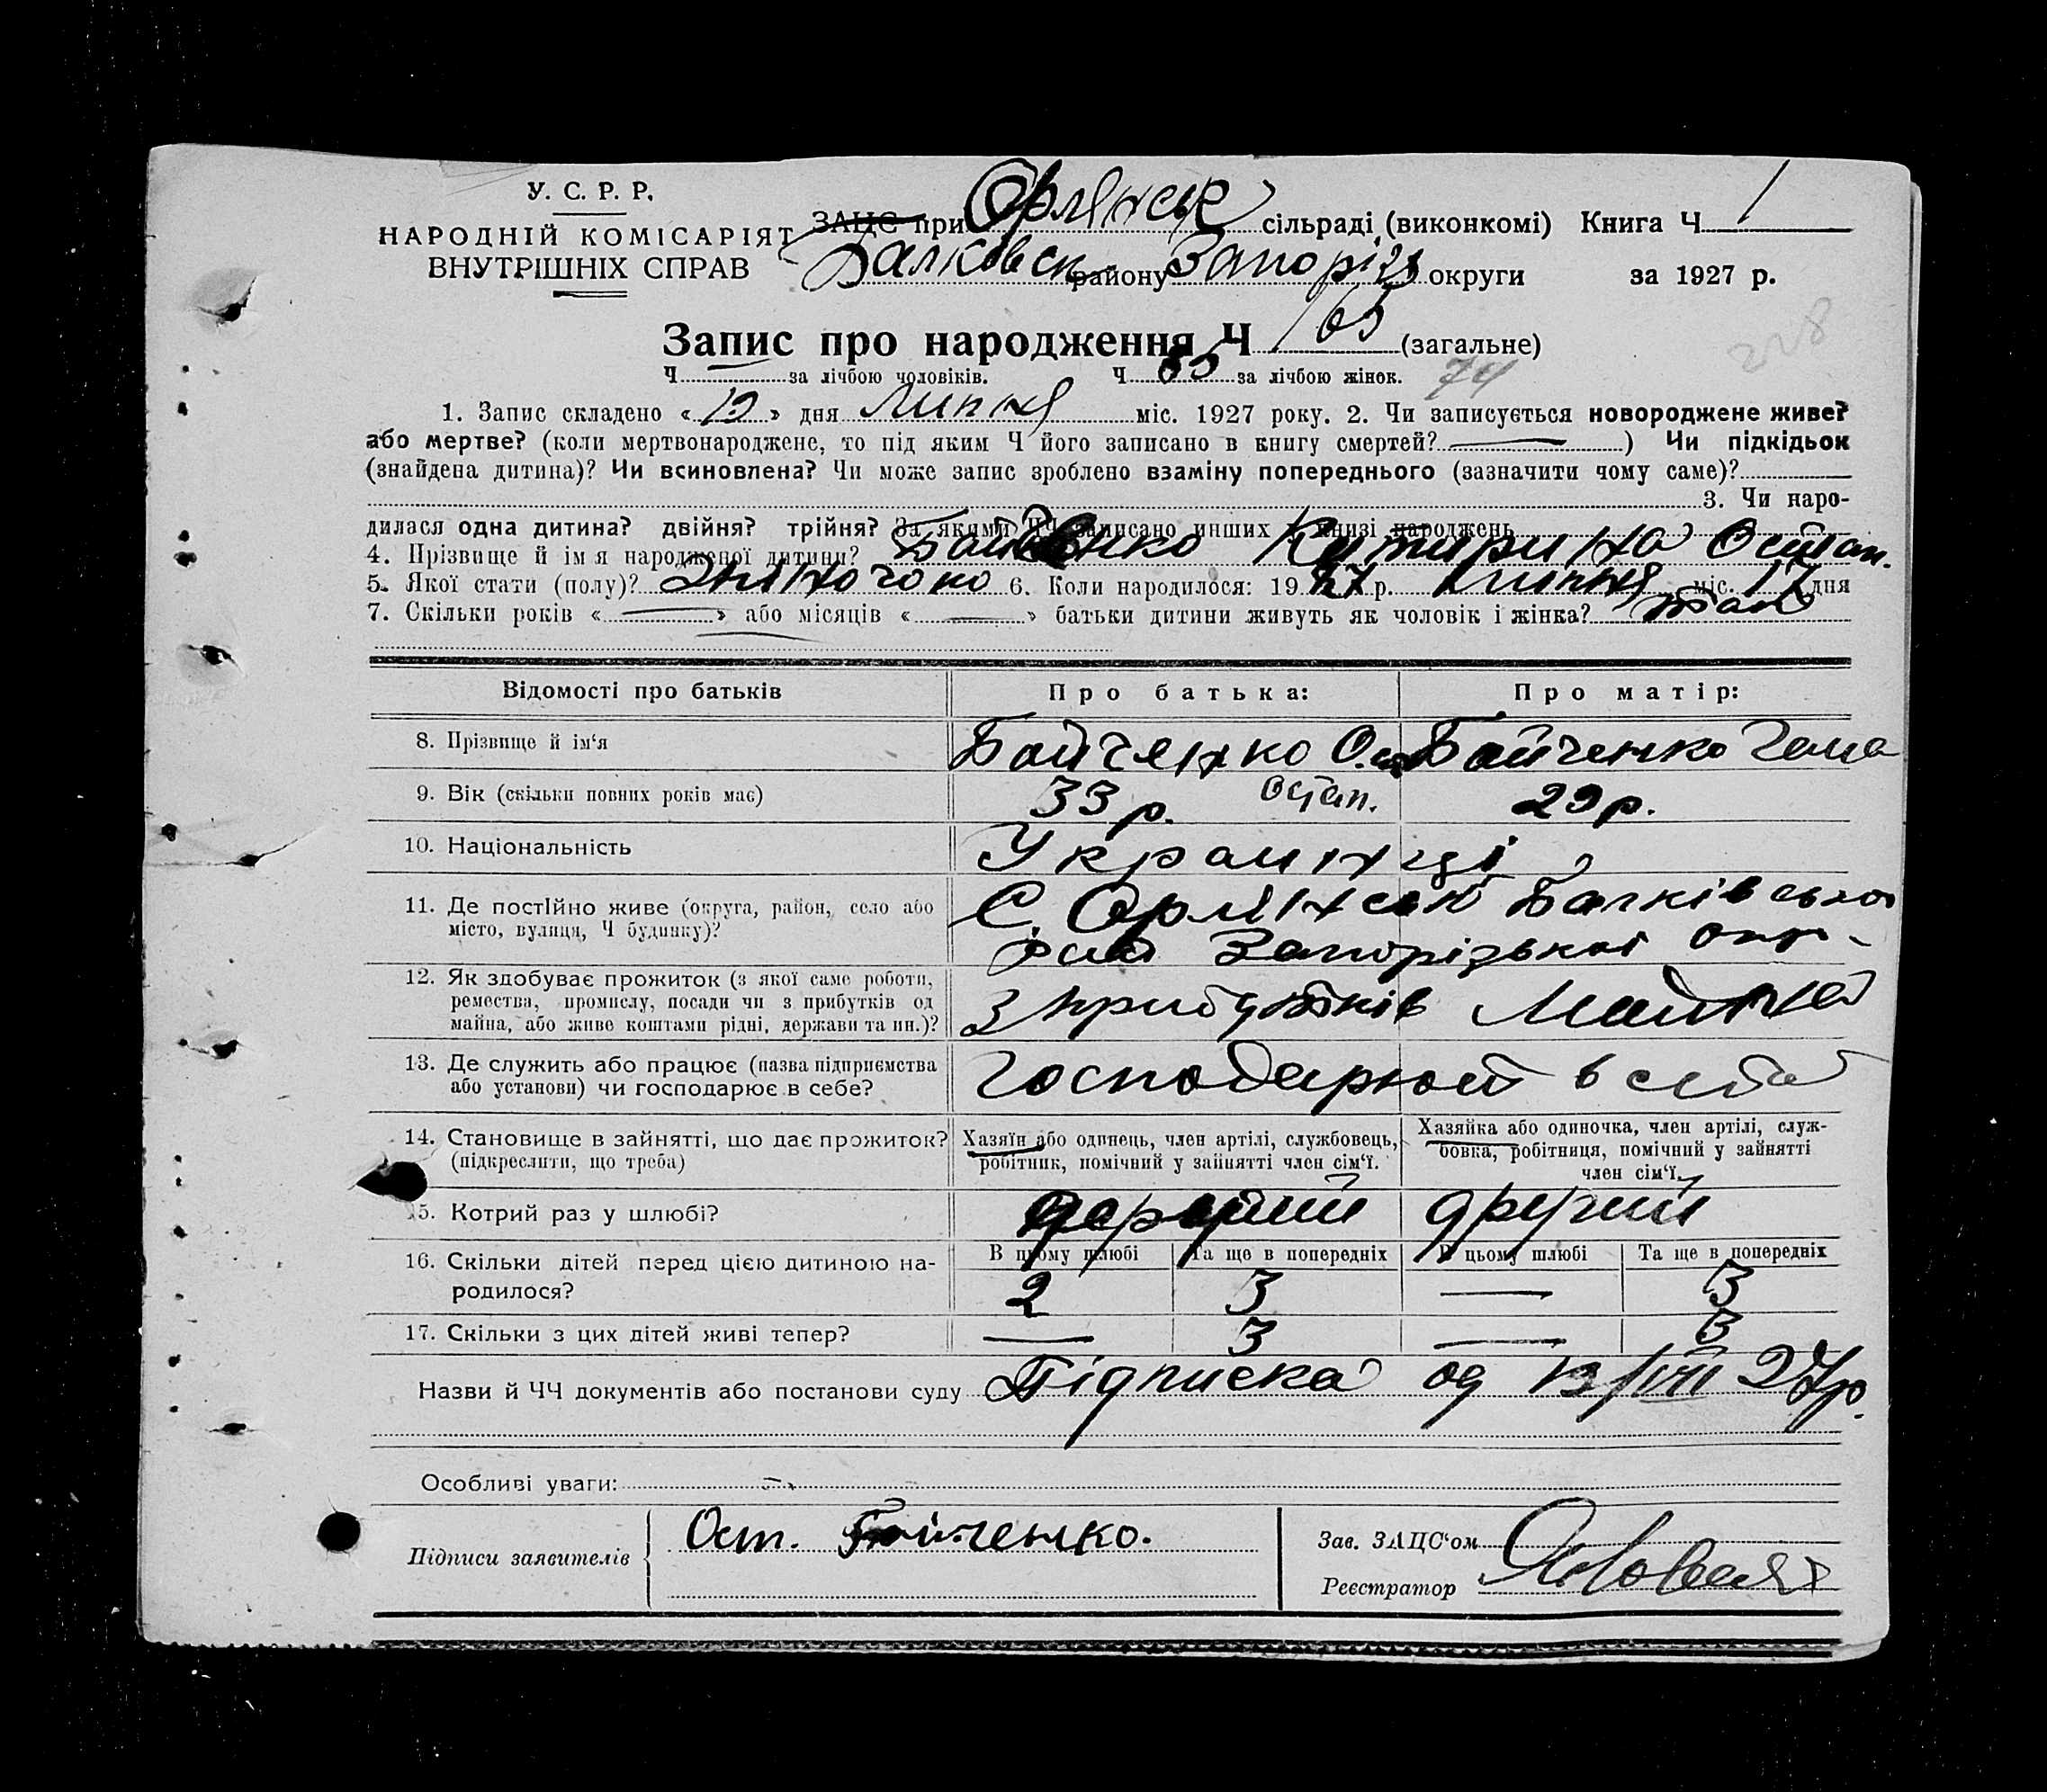 У. С. Р. Р.
НАРОДНІЙ КОМІСАРІЯТ
ВНУТРІШНІХ СПРАВ
ЗАЦС при Орлянськ сільраді (виконкомі) Книга Ч 1
Балковськ району Запоріз округи за 1927 р.
Запис про народження Ч 165 (загальне)
228
Ч за лічбою чоловіків. Ч 85 за лічбою жінок. 74
1. Запис складено « 19 » дня Липня міс. 1927 року. 2. Чи записується новороджене живе?
або мертве? (коли мертвонароджене, то під яким Ч його записано в книгу смертей? — ) Чи підкідьок
(знайдена дитина)? Чи всиновлена? Чи може запис зроблено взаміну попереднього (зазначити чому саме)?
3. Чи наро-
дилася одна дитина? двійня? трійня? За якими ЧЧ записано инших в книзі народжень
4. Прізвище й ім я народженої дитини? Катирина Остап.
5. Якої стати (полу)? жіночого 6. Коли народилося: 1927 р. Липня міс. 17 дня
7. Скільки років « — » або місяців « — » батьки дитини живуть як чоловік і жінка? так
Відомості про батьків Про батька: Про матір:
8. Прізвище й ім'я Бойченко Ост Бойченко
Остап.
9. Вік (скільки повних років має) 33 р. 29 р.
10. Національність Украинці
11. Де постІйно живе (округа, район, село або
місто, вулиця, Ч будинку)?
С. Орлянськ Балківської
рай Запорізької окр.
12. Як здобуває прожиток (з якої саме роботи,
ремества, промислу, посади чи з прибутків од
майна, або живе коштами рідні, держави та ин.)?
З прибутків
13. Де служить або працює (назва підприємства
або установи) чи господарює в себе?
Господарюют в себя
14. Становище в зайнятті, що дає прожиток?
(підкреслити, що треба)
Хазяїн або одинець, член артілі, службовець,
робітник, помічний у зайнятті член сім'ї.
Хазяйка або одиночка, член артілі, служ-
бовка, робітниця, помічний у зайнятті
член сім'ї.
15. Котрий раз у шлюбі? другий
16. Скільки дітей перед цією дитиною на-
родилося?
В цьому шлюбі Та ще в попередніх В цьому шлюбі Та ще в попередніх
2 3 — 3
17. Скільки з цих дітей живі тепер? — 3 — 3
Назви й ЧЧ документів або постанови суду Підписка од 19/VII 27р.
Особливі уваги:
Підписи заявителів Ост. Бойченко.
Зав. ЗАЦС'ом
Реєстратор